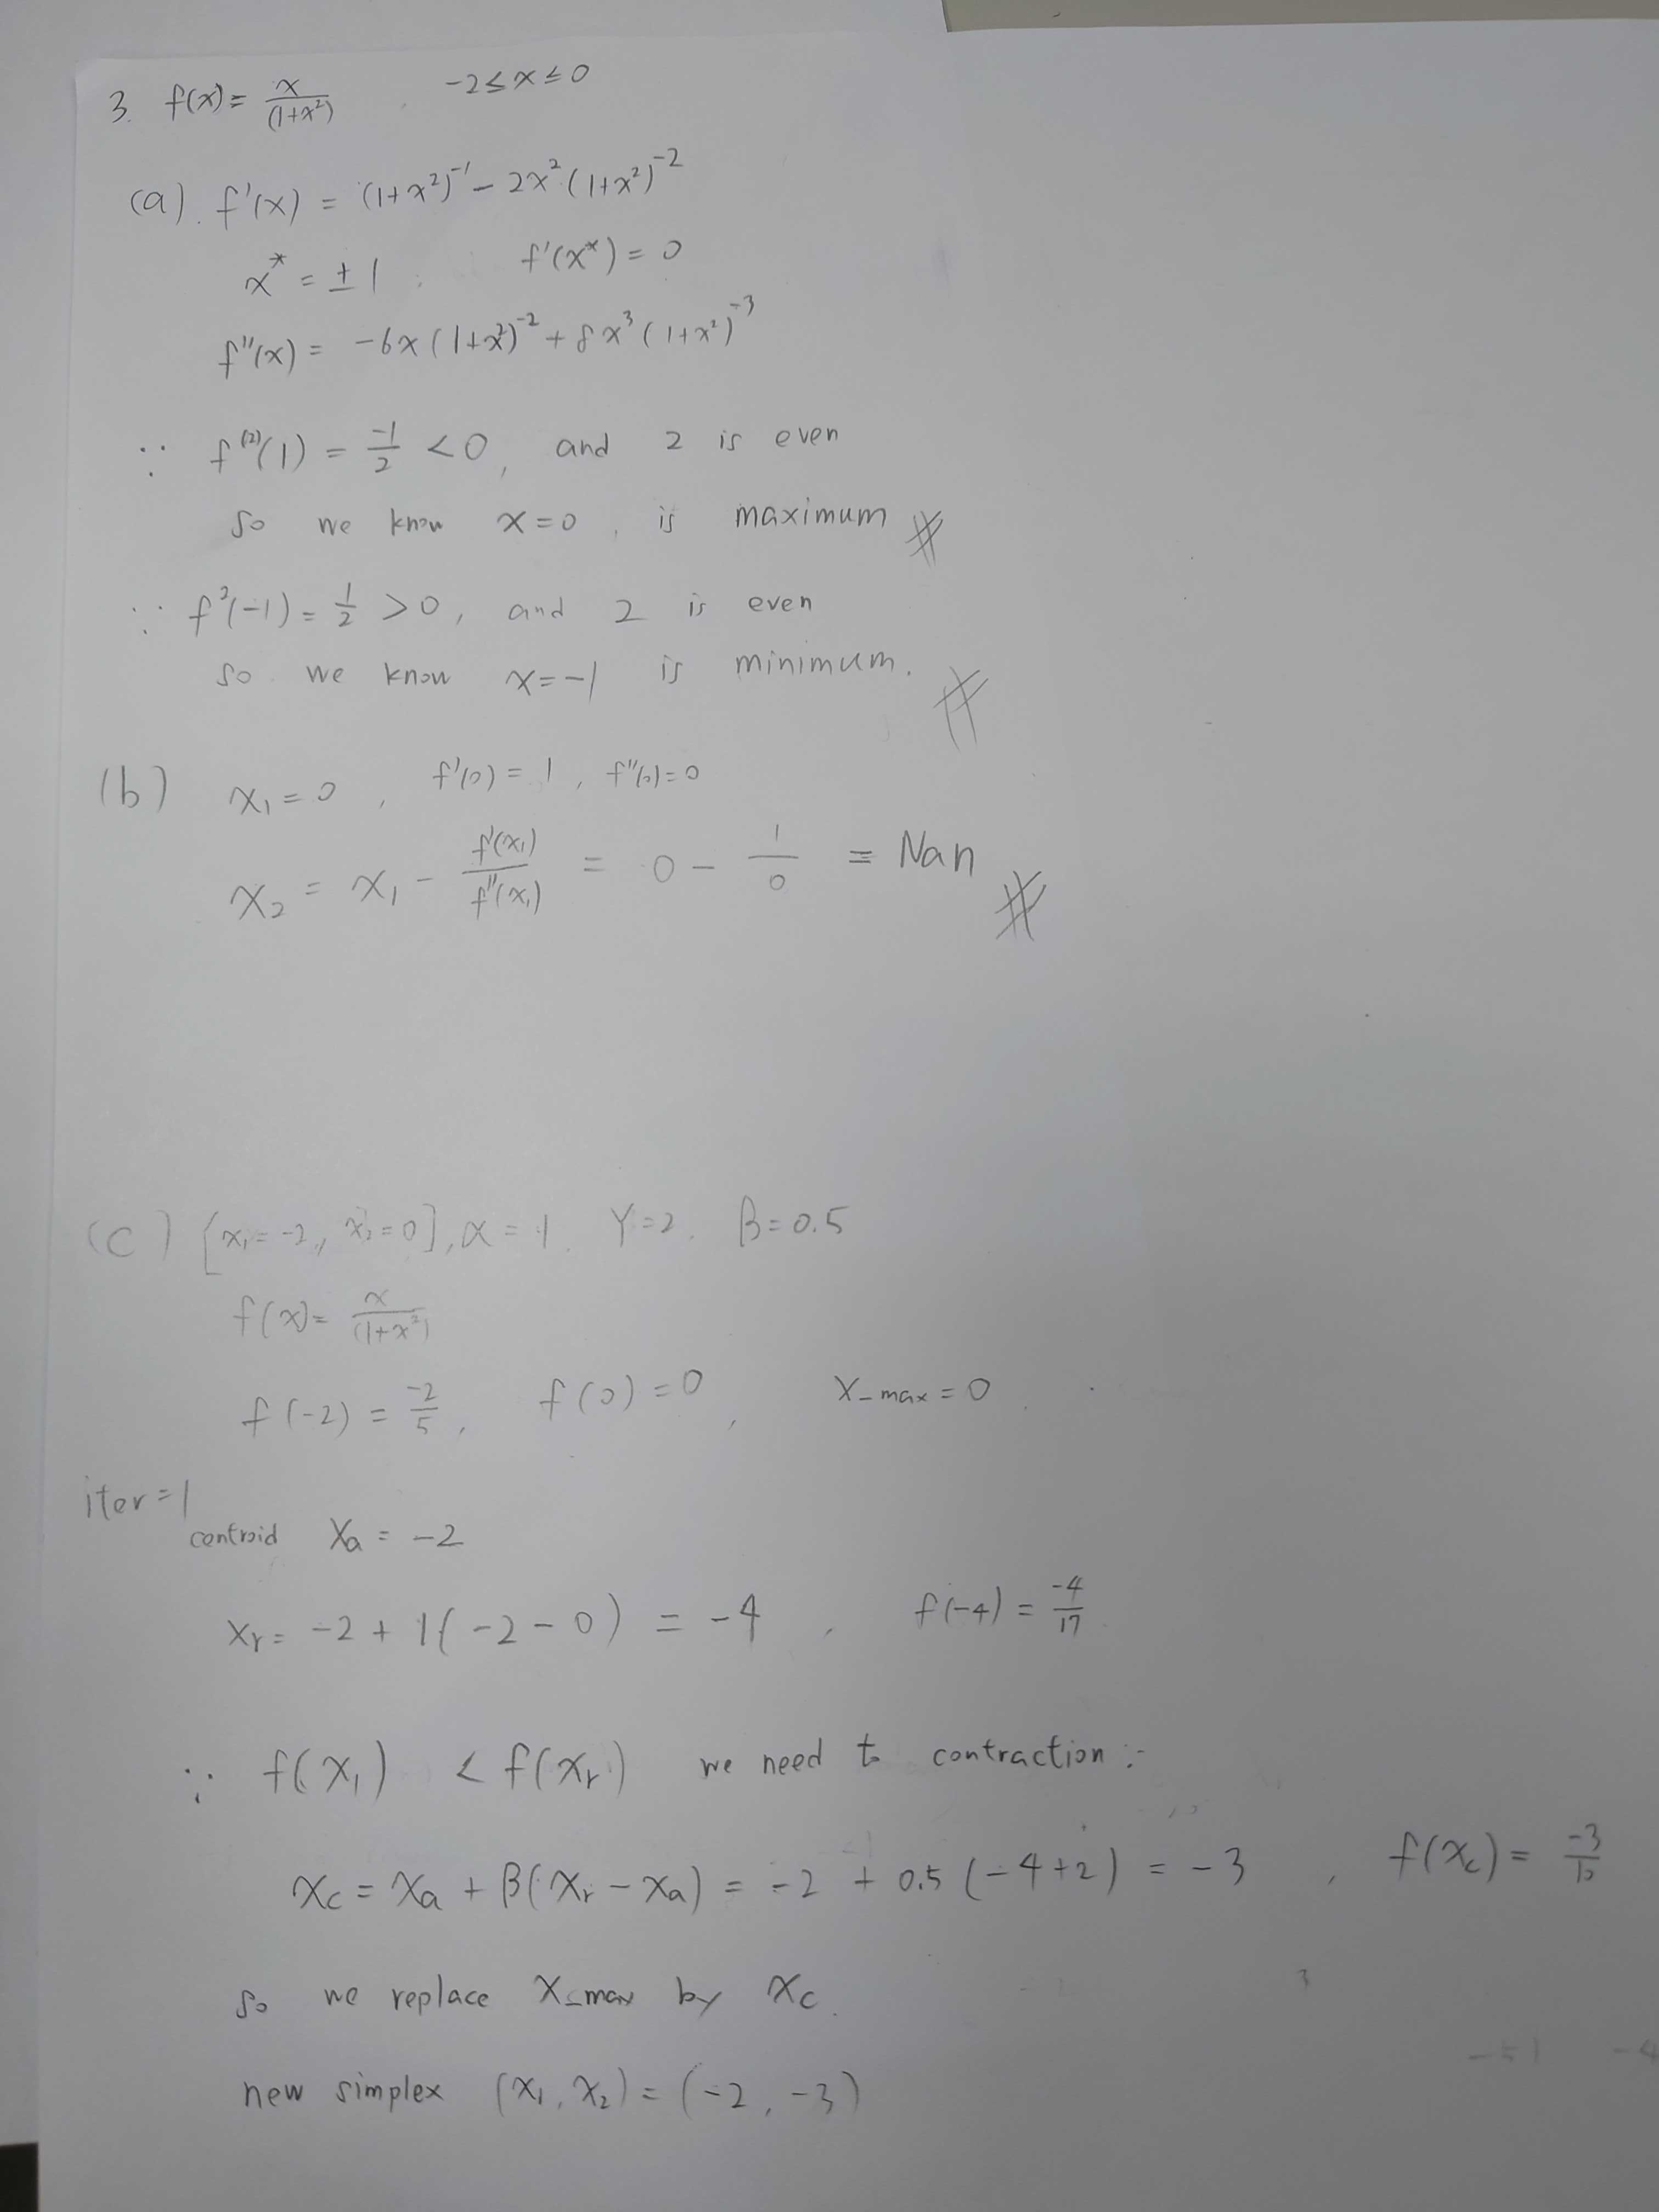 3. f(x) = x/(1+x²) , -2 ≤ x ≤ 0
(a). f'(x) = (1+x²)⁻¹ - 2x²(1+x²)⁻²
x* = ±1 , f'(x*) = 0
f''(x) = -6x(1+x²)⁻² + 8x³(1+x²)⁻³
∵ f⁽²⁾(1) = -1/2 < 0, and 2 is even
so we know x=0 , is maximum #
∵ f²(-1) = 1/2 > 0, and 2 is even
so we know x=-1 is minimum. #
(b) x₁ = 0 , f'(0) = 1 , f''(0) = 0
x₂ = x₁ - f'(x₁)/f''(x₁) = 0 - 1/0 = Nan #
(c) [x₁=-2, x₂=0], α=1, γ=2, β=0.5
f(x) = x/(1+x²)
f(-2) = -2/5 , f(0) = 0 , X_max = 0 .
iter=1
centroid Xa = -2
Xr = -2 + 1(-2-0) = -4 , f(-4) = -4/17
∵ f(x₁) < f(xr) we need to contraction :
Xc = Xa + β(Xr - Xa) = -2 + 0.5(-4+2) = -3 , f(xc) = -3/10
so we replace X_max by Xc .
new simplex (x₁, x₂) = (-2, -3)